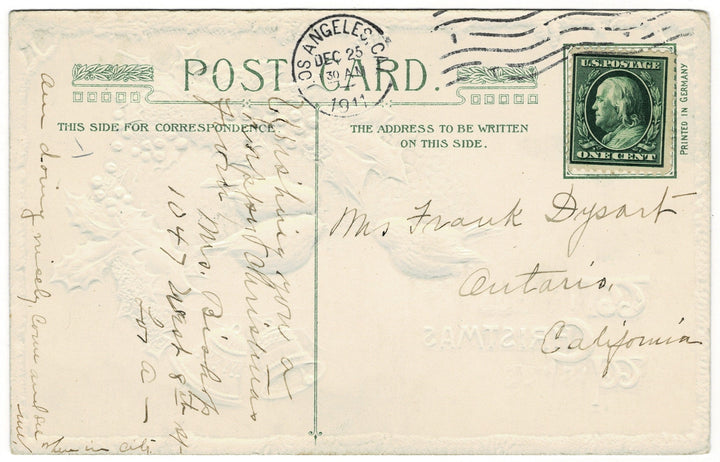 POST CARD.
THIS SIDE FOR CORRESPONDENCE
THE ADDRESS TO BE WRITTEN
ON THIS SIDE.
LOS ANGELES, CA
DEC 25
30 AM
1911
U.S. POSTAGE
ONE CENT
PRINTED IN GERMANY
Wishing you a
Happy Christmas
from Mrs. Bishop
1047 West 8th St
Los A—
Am doing nicely come and see
me when in city
Mrs Frank Dysart
Ontario,
California
CHRISTMAS